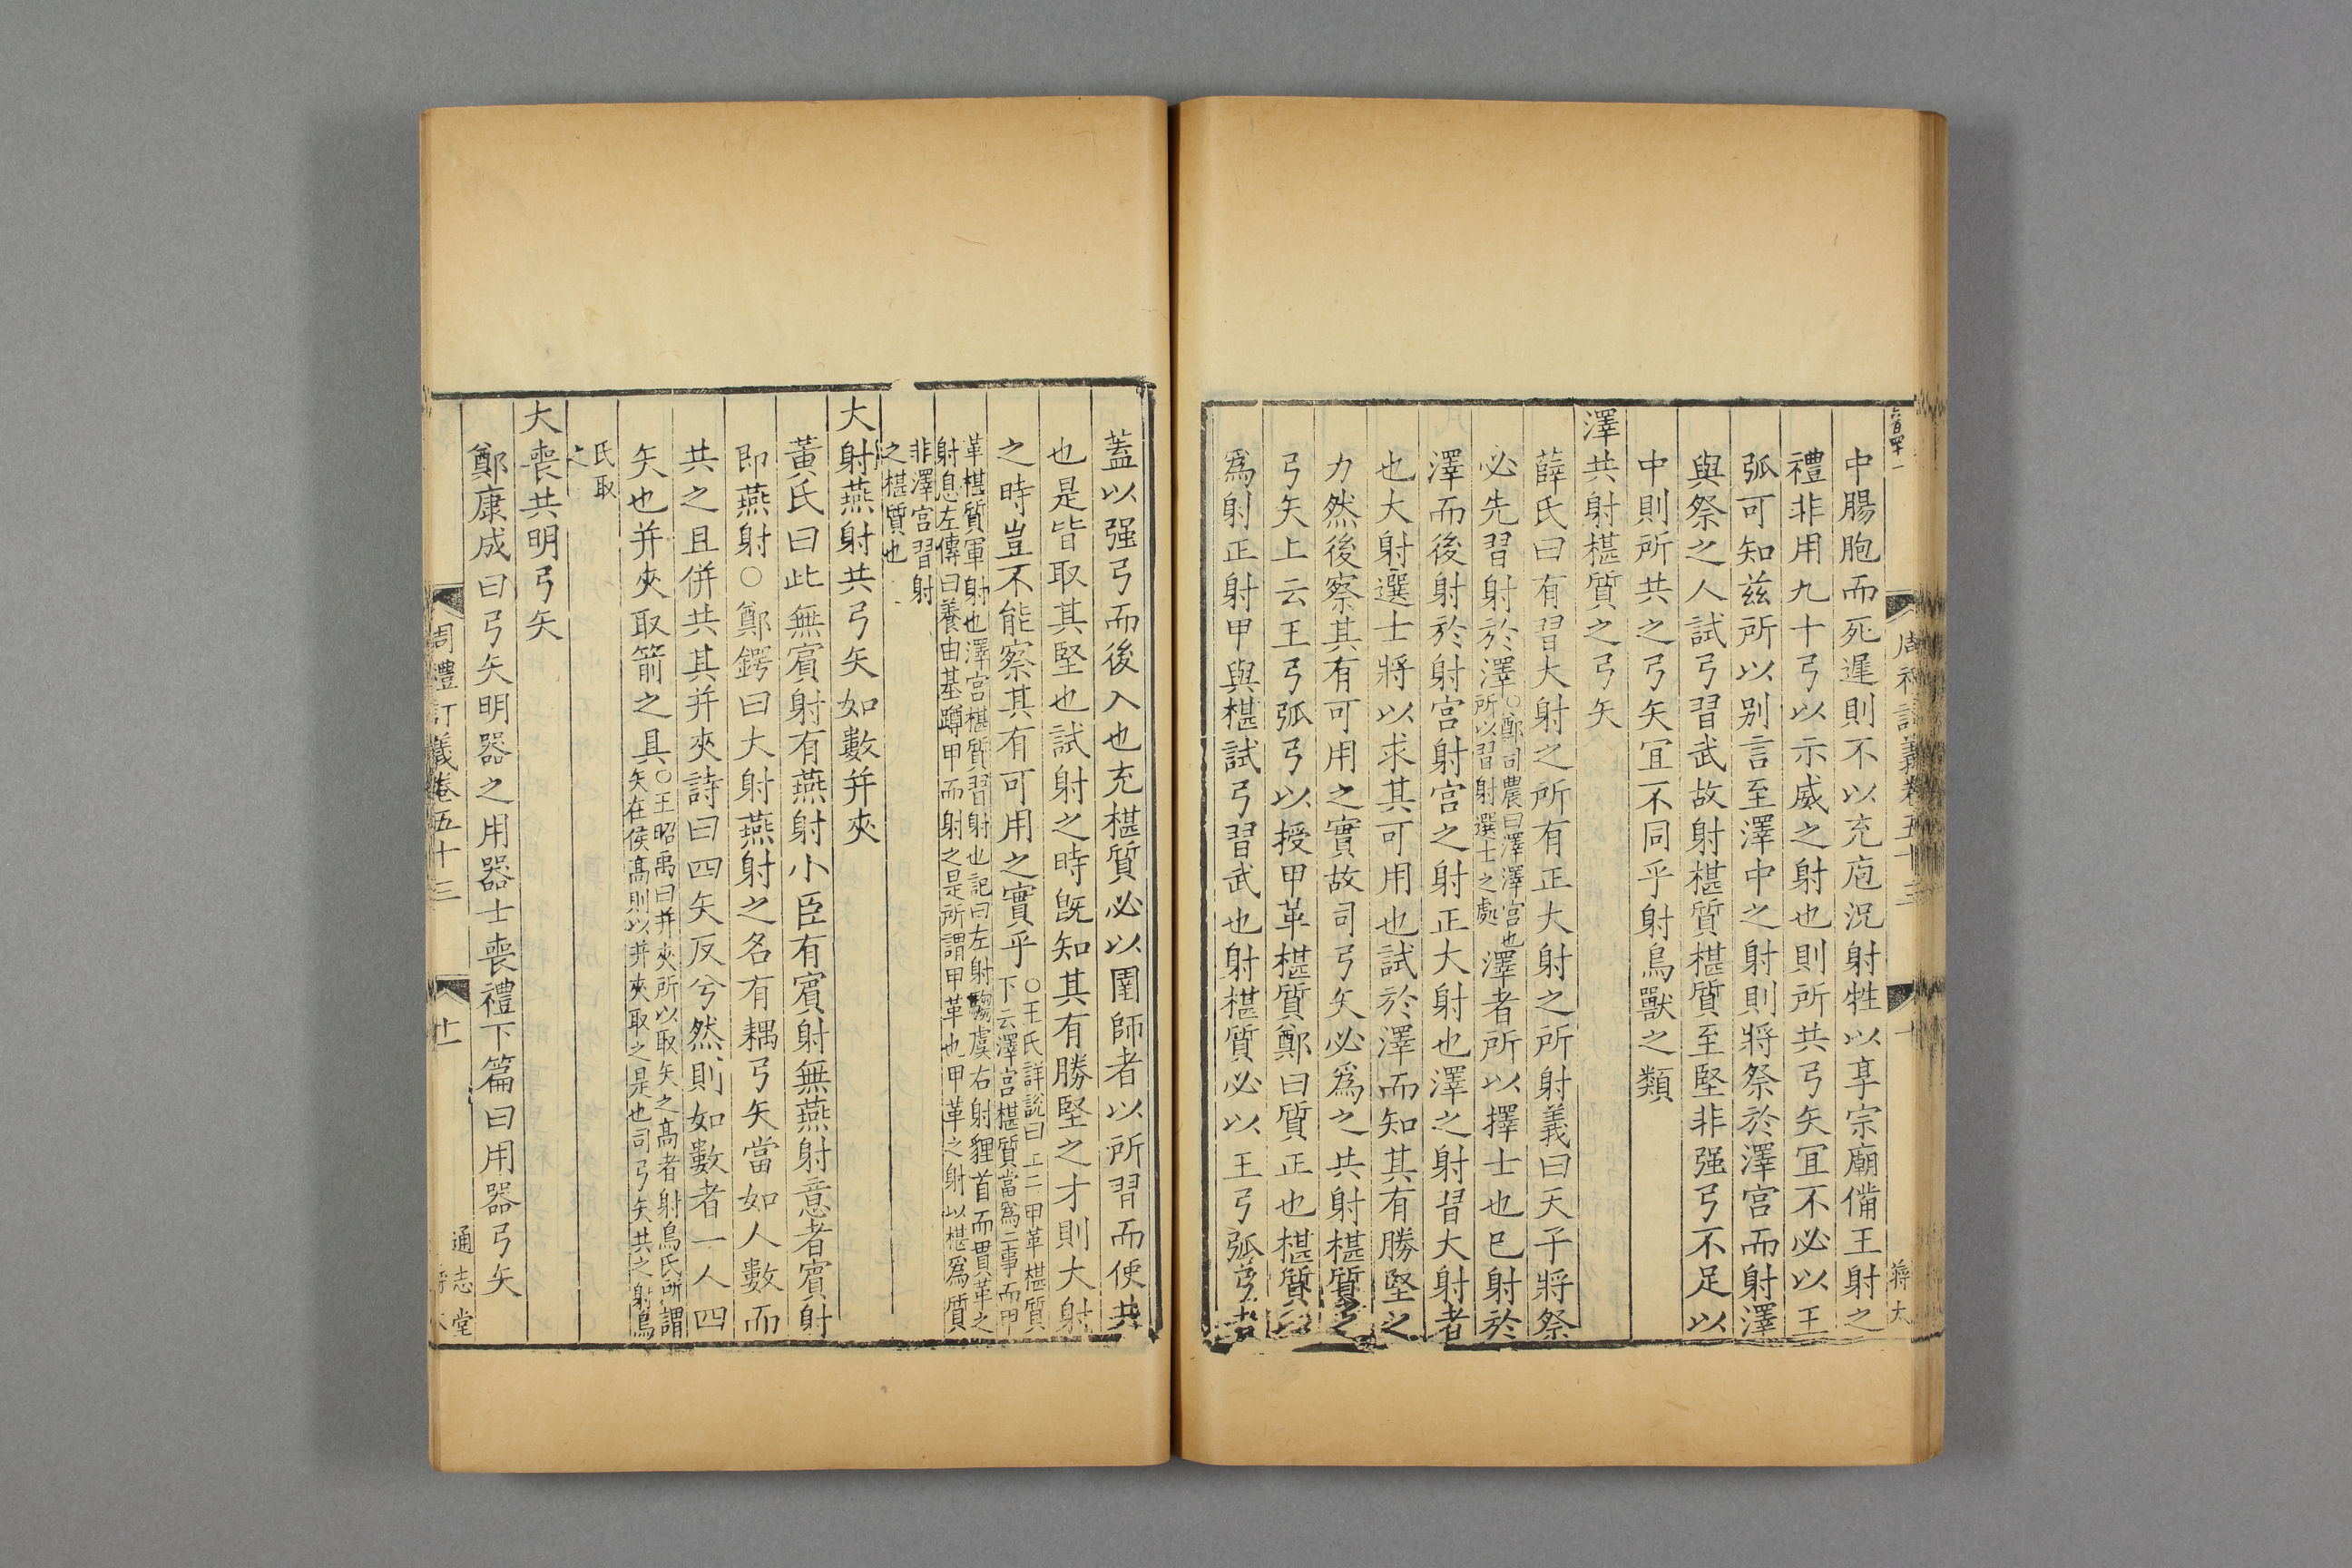 六百四十一
周禮訂義卷五十三
十
蔣大
中腸胞而死遲則不以充庖況射牲以享宗廟備王射之
禮非用九十弓以示威之射也則所共弓矢冝不必以王
弧可知兹所以别言至澤中之射則將祭於澤宮而射澤
與祭之人試弓習武故射椹質椹質至堅非强弓不足以
中則所共之弓矢冝不同乎射鳥獸之類
澤共射椹質之弓矢
薛氏曰有習大射之所有正大射之所射義曰天子將祭
必先習射於澤○鄭司農曰澤澤宮也所以習射選士之處澤者所以擇士也已射於
澤而後射於射宮射宮之射正大射也澤之射習大射者
也大射選士將以求其可用也試於澤而知其有勝堅之
力然後察其有可用之實故司弓矢必爲之共射椹質之
弓矢上云王弓弧弓以授甲革椹質鄭曰質正也椹質以
爲射正射甲與椹試弓習武也射椹質必以王弓弧弓者
蓋以强弓而後入也充椹質必以圉師者以所習而使共
也是皆取其堅也試射之時旣知其有勝堅之才則大射
之時豈不能察其有可用之實乎○王氏詳說曰上二甲革椹質下云澤宮椹質當爲二事而甲
革椹質軍射也澤宮椹質習射也記曰左射騶虞右射貍首而貫革之
射息左傳曰養由基蹲甲而射之是所謂甲革也甲革之射以椹爲質
非澤宮習射
之椹質也
大射燕射共弓矢如數并夾
黃氏曰此無賓射有燕射小臣有賓射無燕射意者賓射
即燕射○鄭鍔曰大射燕射之名有耦弓矢當如人數而
共之且併共其并夾詩曰四矢反兮然則如數者一人四
矢也并夾取箭之具○王昭禹曰并夾所以取矢之高者射鳥氏所謂矢在侯高則以并夾取之是也司弓矢共之射鳥
氏取
之
大喪共明弓矢
鄭康成曰弓矢明器之用器士喪禮下篇曰用器弓矢
周禮訂義卷五十三
十一
通志堂